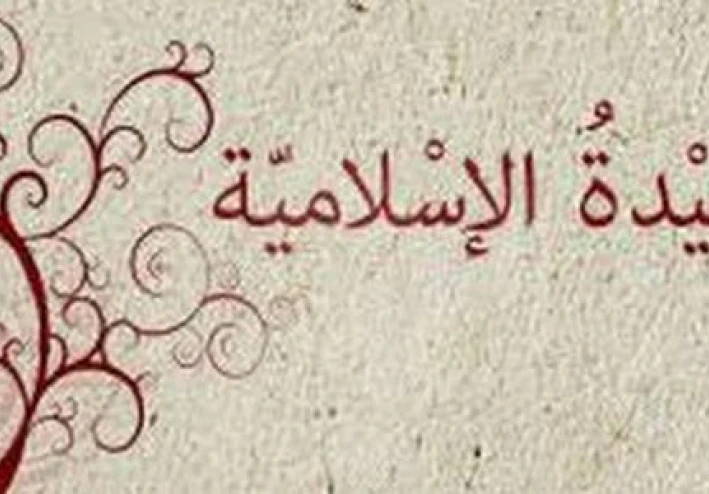 يْدةُ الإسْلاميّة